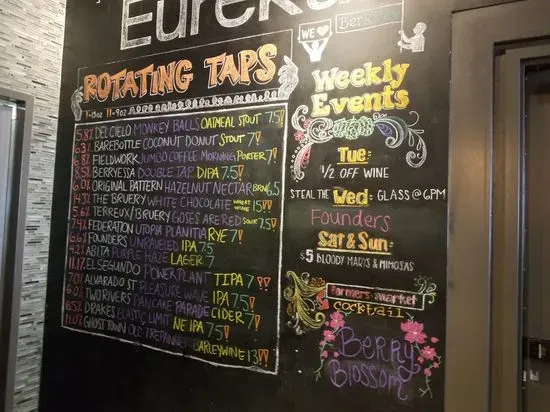 Eureka!
WE ♥ Berkeley
ROTATING TAPS
!-13oz !!-9oz
5.8% DEL CIELO MONKEY BALLS OATMEAL STOUT 7.5!
6.3% BAREBOTTLE COCONUT DONUT STOUT 7!
6.8% FIELDWORK JUMBO COFFEE MORNING PORTER 7!
8.5% BERRYESSA DOUBLE TAP DIPA 7.5!
6.0% ORIGINAL PATTERN HAZELNUT NECTAR BRN 6.5
14.3% THE BRUERY WHITE CHOCOLATE WHEAT WINE 15!!
5.6% TERREUX/BRUERY GOSES ARE RED SOUR 7.5!
7.4% FEDERATION UTOPIA PLANITIA RYE 7!
6.6% FOUNDERS UNRAVELED IPA 7.5
4.2% ABITA PURPLE HAZE LAGER 7
11.1% EL SEGUNDO POWER PLANT TIPA 7!!
7.0% ALVARADO ST PLEASURE WAVE IPA 7.5!
6.0% TWO RIVERS PANCAKE PARADE CIDER 7!
DRAKES ELASTIC LIMIT NE IPA 7.5!
GHOST TOWN OLD TREPANNER BARLEYWINE 13!!
Weekly
Events
Tue:
1/2 OFF WINE
STEAL THE Wed: GLASS @ 6PM
Founders
Sat & Sun:
$5 BLOODY MARYS & MIMOSAS
farmers market
cocktail
Berry
Blossom